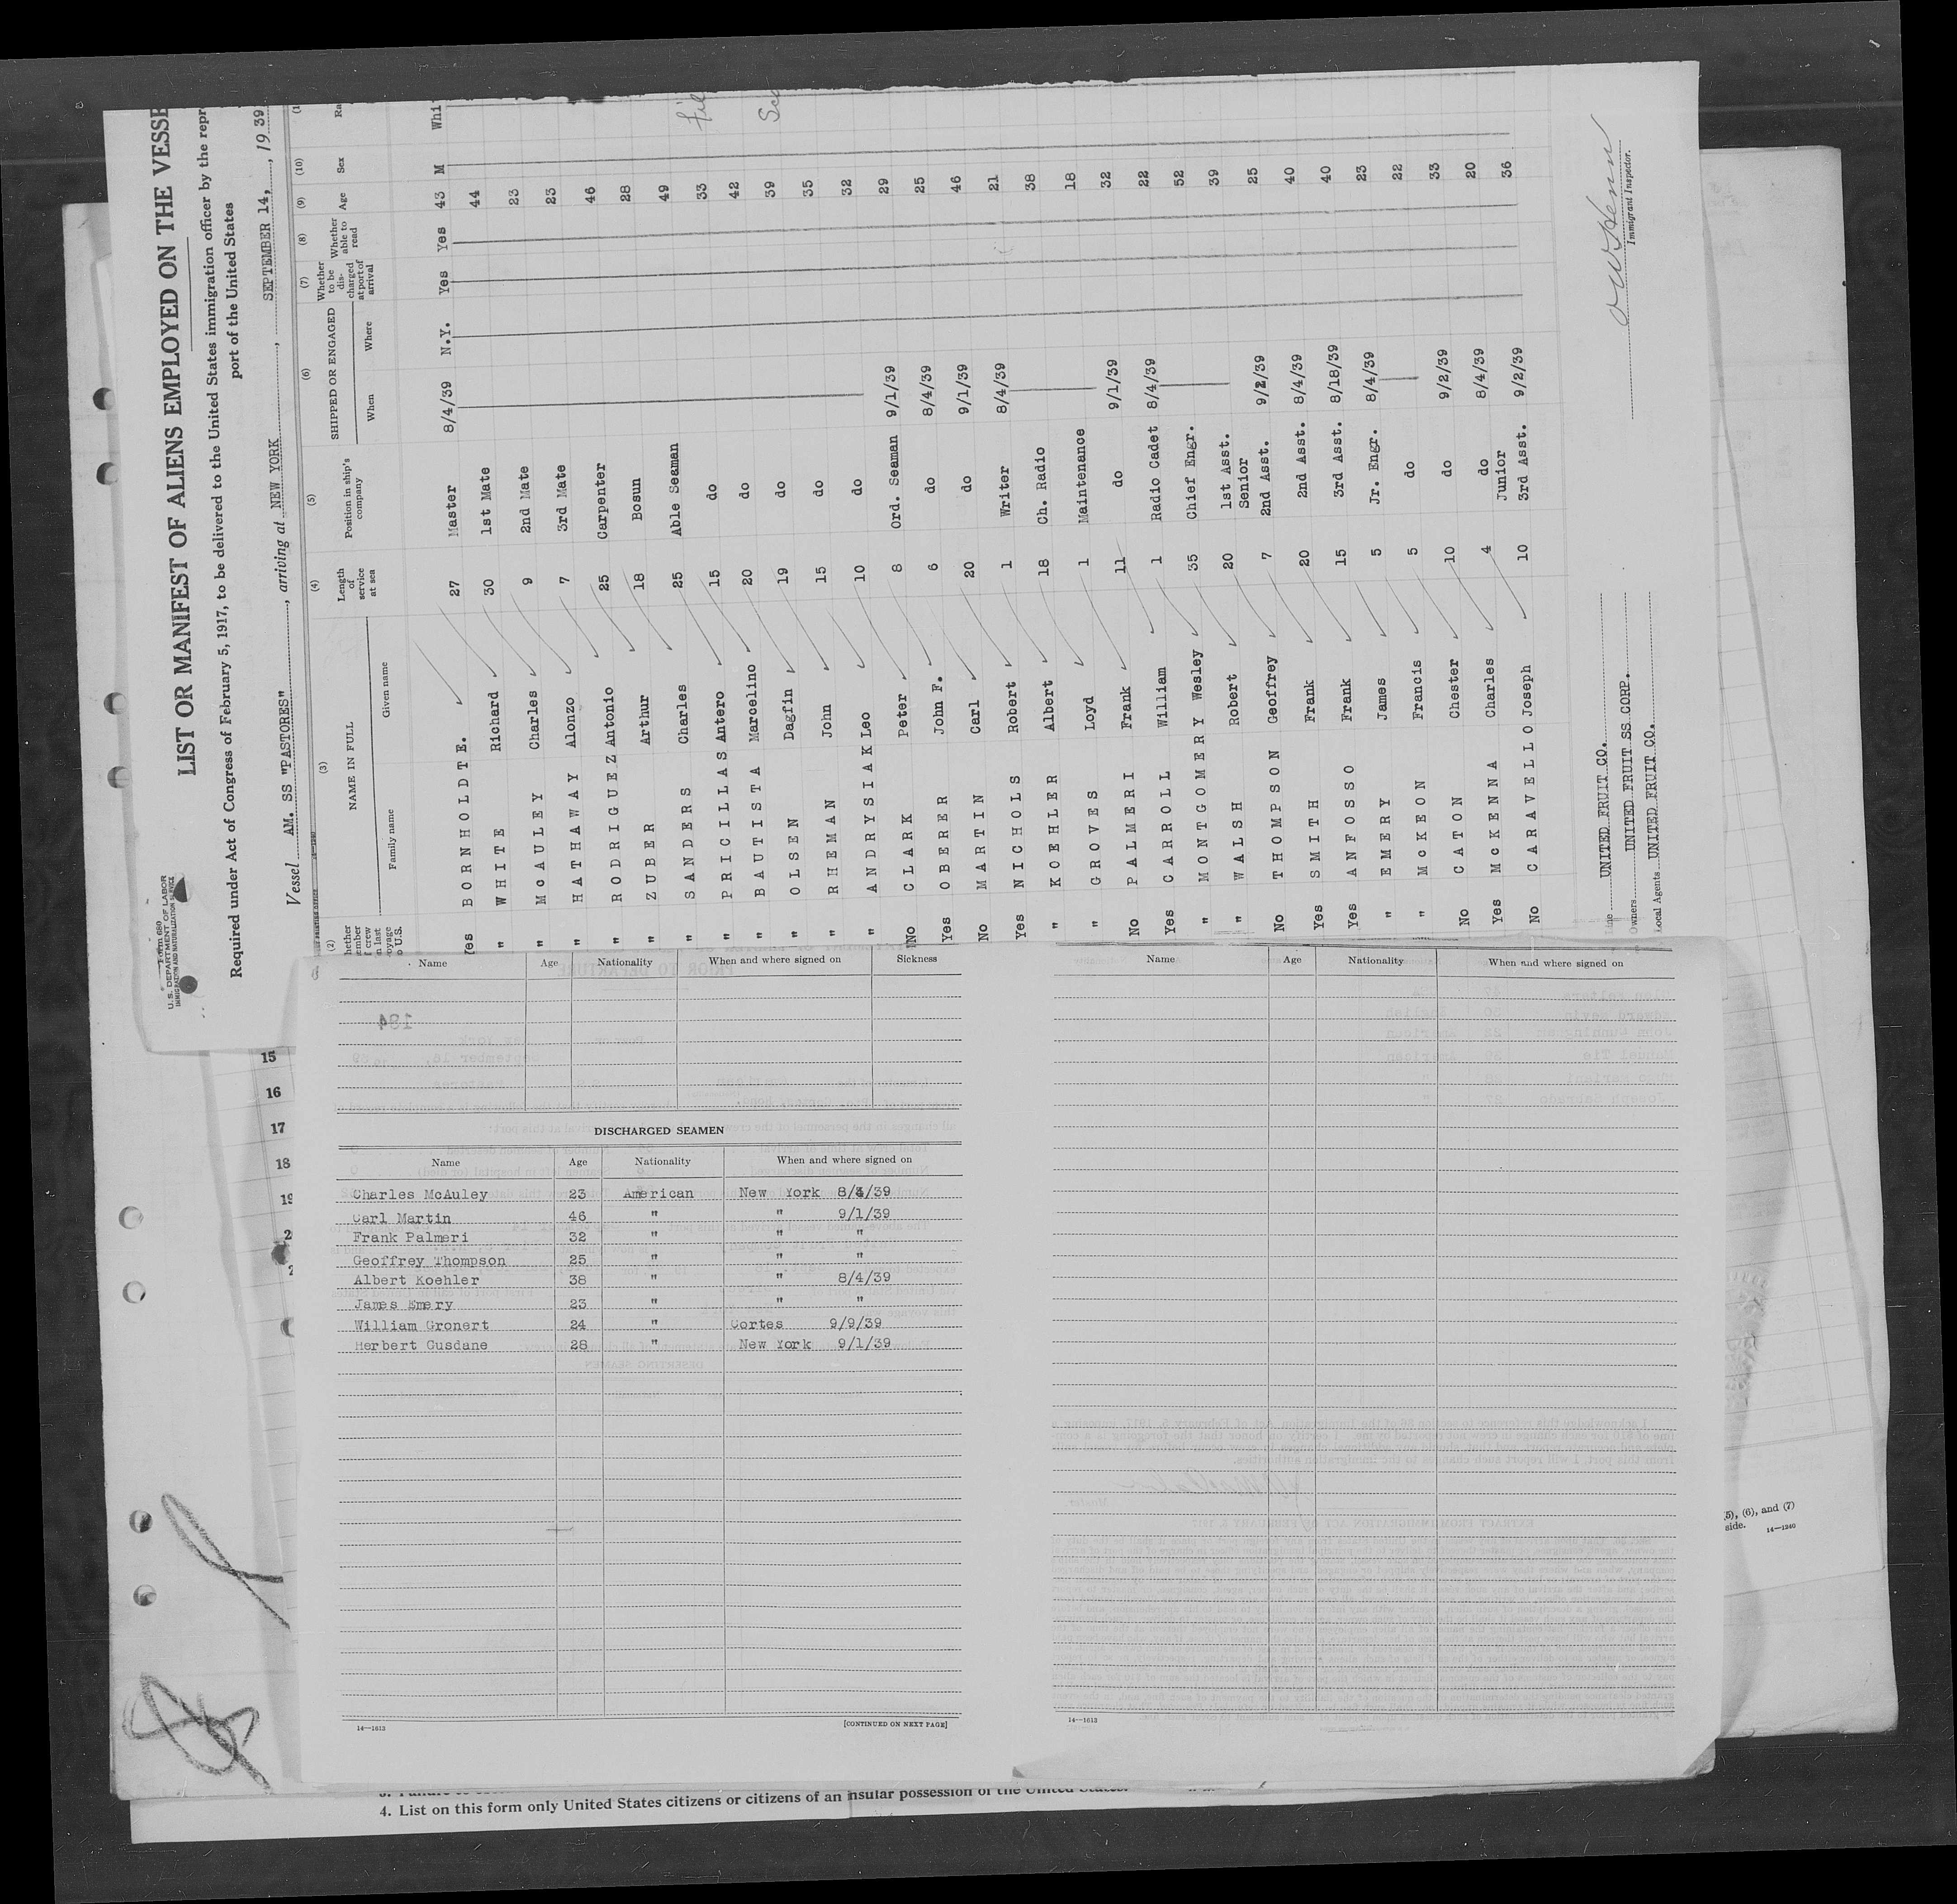 Form 680
U. S. DEPARTMENT OF LABOR
IMMIGRATION AND NATURALIZATION SERVICE
LIST OR MANIFEST OF ALIENS EMPLOYED ON THE VESSE
Required under Act of Congress of February 5, 1917, to be delivered to the United States immigration officer by the repr
port of the United States
Vessel AM. SS "PASTORES", arriving at NEW YORK, SEPTEMBER 14, 1939
(2) (3) (4) (5) (6) (7) (8) (9) (10)
NAME IN FULL
Family name Given name
Length of service at sea
Position in ship's company
SHIPPED OR ENGAGED
When Where
Whether to be discharged at port of arrival
Whether able to read
Age Sex Ra
Yes BORNHOLDT E. 27 Master 8/4/39 N.Y. Yes Yes 43 M Whi
" WHITE Richard 30 1st Mate 44
" McAULEY Charles 9 2nd Mate 23
" HATHAWAY Alonzo 7 3rd Mate 23
" RODRIGUEZ Antonio 25 Carpenter 46
" ZUBER Arthur 18 Bosun 28
" SANDERS Charles 25 Able Seaman 49
" PRICILLAS Antero 15 do 33 Fil
" BAUTISTA Marcelino 20 do 42
" OLSEN Dagfin 19 do 39 Sca
" RHEMAN John 15 do 35
" ANDRYSIAK Leo 10 do 32
No CLARK Peter 8 Ord. Seaman 9/1/39 29
Yes OBERER John F. 6 do 8/4/39 25
No MARTIN Carl 20 do 9/1/39 46
Yes NICHOLS Robert 1 Writer 8/4/39 21
" KOEHLER Albert 18 Ch. Radio 38
" GROVES Loyd 1 Maintenance 18
No PALMERI Frank 11 do 9/1/39 32
Yes CARROLL William 1 Radio Cadet 8/4/39 22
" MONTGOMERY Wesley 35 Chief Engr. 52
" WALSH Robert 20 1st Asst. 39
No THOMPSON Geoffrey 7 Senior 2nd Asst. 9/2/39 25
Yes SMITH Frank 20 2nd Asst. 8/4/39 40
Yes ANFOSSO Frank 15 3rd Asst. 8/18/39 40
" EMERY James 5 Jr. Engr. 8/4/39 23
" McKEON Francis 5 do 22
No CATON Chester 10 do 9/2/39 33
Yes McKENNA Charles 4 do 8/4/39 20
No CARAVELLO Joseph 10 Junior 3rd Asst. 9/2/39 36
UNITED FRUIT CO.
Owners UNITED FRUIT SS CORP.
Local Agents UNITED FRUIT CO.
Immigrant Inspector.
Name Age Nationality When and where signed on Sickness
15
16
17
18
DISCHARGED SEAMEN
Name Age Nationality When and where signed on
Charles McAuley 23 American New York 8/4/39
Carl Martin 46 " " 9/1/39
Frank Palmeri 32 " " "
Geoffrey Thompson 25 " " "
Albert Koehler 38 " " 8/4/39
James Emery 23 " " "
William Gronert 24 " Cortes 9/9/39
Herbert Gusdane 28 " New York 9/1/39
14—1613
[CONTINUED ON NEXT PAGE]
Name Age Nationality When and where signed on
14—1613
(5), (6), and (7)
side. 14—1240
4. List on this form only United States citizens or citizens of an insular possession of the United States.